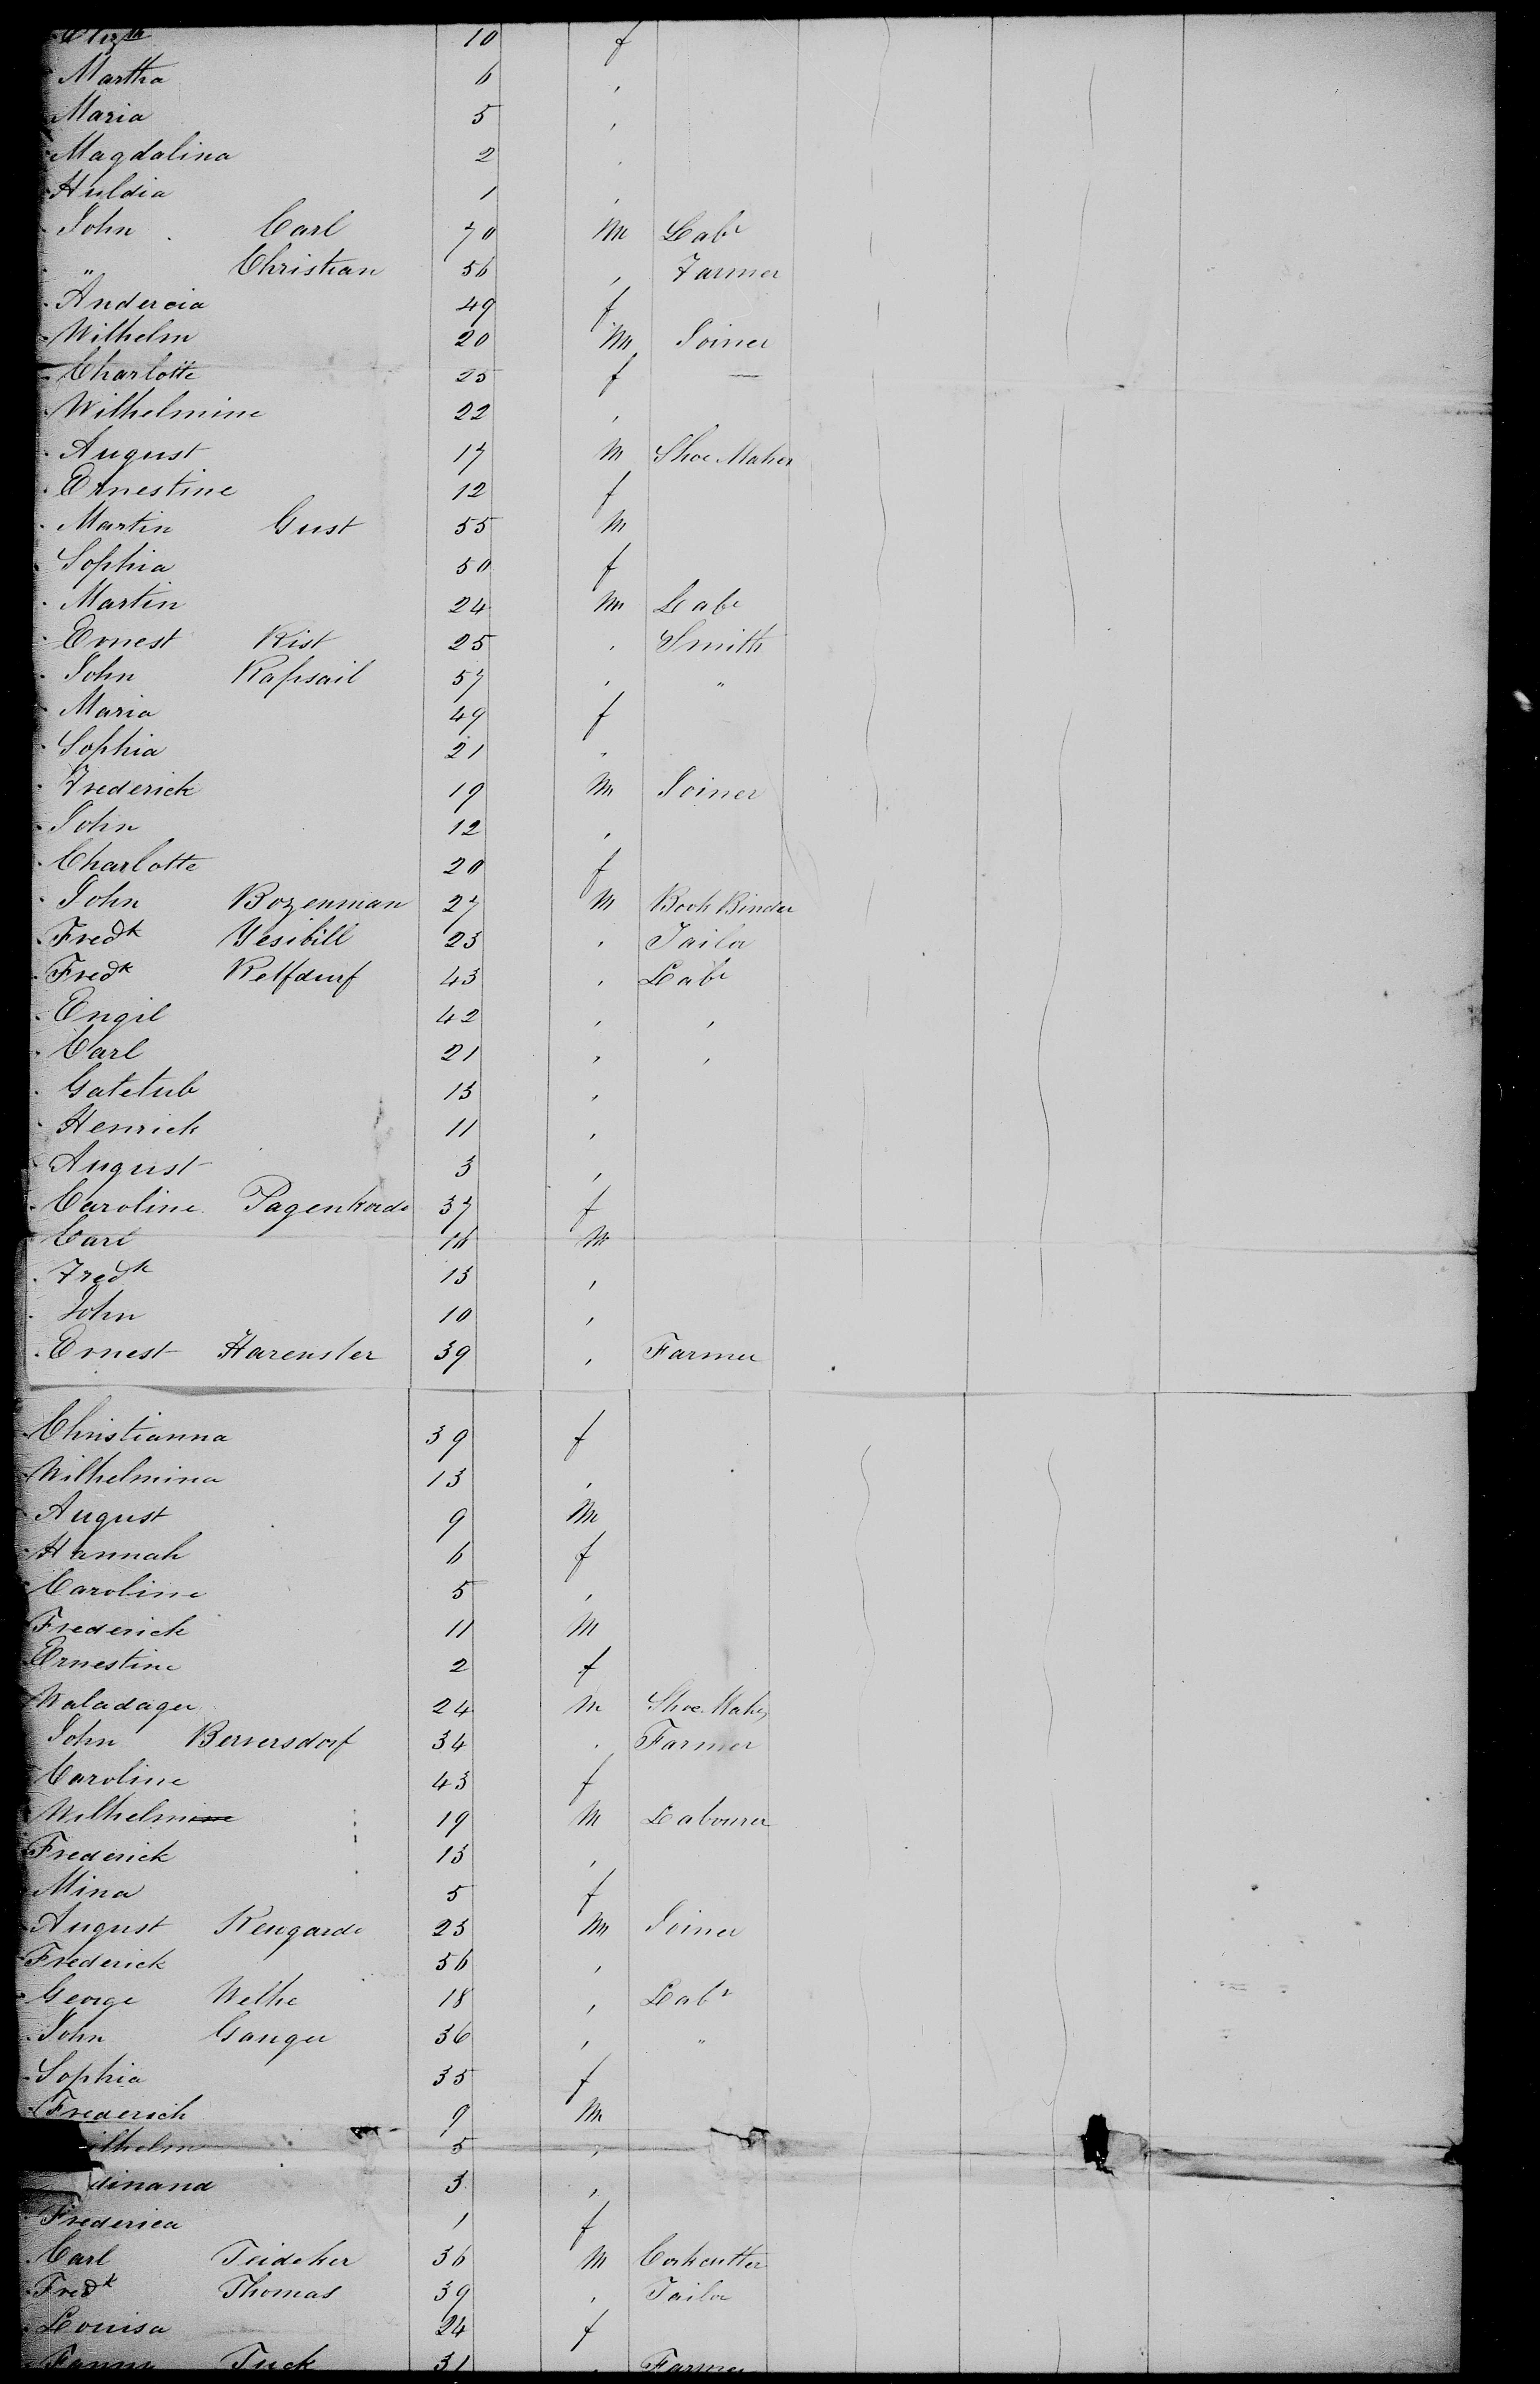 Eliz.th 10 f
Martha 6 ,
Maria 5 ,
Magdalina 2 ,
Huldia 1 ,
John Carl 70 M Labr
" Christian 56 , Farmer
Andercia 49 f
Wilhelm 20 M Joiner
Charlotte 25 f —
Wilhelmine 22 ,
August 17 M Shoe Maker
Ernestine 12 f
Martin Gust 55 M
Sophia 50 f
Martin 24 M Labr
Ernest Kist 25 , Smith
John Kapsail 57 , "
Maria 49 f
Sophia 21 ,
Frederick 19 M Joiner
John 12 ,
Charlotte 20 f
John Bozenman 27 M Book Binder
Fredk Yesibill 23 , Tailor
Fredk Kelfdurf 43 , Labr
Engil 42 , ,
Carl 21 , ,
Gatetub 13 ,
Henrick 11 ,
August 3 ,
Caroline Pagenkorde 37 f
Carl 16 M
Fredk 13 ,
John 10 ,
Ernest Harenster 39 , Farmer
Christianna 39 f
Wilhelmina 13 ,
August 9 M
Hannah 6 f
Caroline 5 ,
Frederick 11 M
Ernestine 2 f
Waladager 24 M Shoe Maker
John Berversdorf 34 , Farmer
Caroline 43 f
Wilhelmine 19 M Labourer
Frederick 13 ,
Mina 5 f
August Rengarde 23 M Joiner
Frederick 56 ,
George Welhe 18 , Labr
John Ganger 36 , "
Sophia 35 f
Frederick 9 M
ilhelm 5 ,
dinand 3 ,
Frederica 1 f
Carl Teideker 36 M Corkcutter
Fredk Thomas 39 , Tailor
Louisa 24 f
Tuck 31 , Farmer